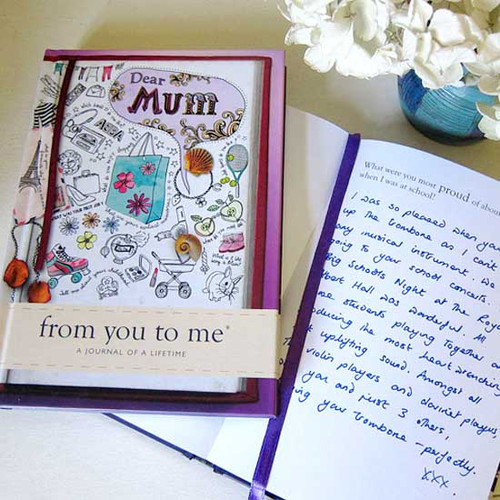 Dear
Mum
ABBA
from you to me®
A JOURNAL OF A LIFETIME
What were you most proud of abou
when I was at school?
I was so pleased when you
up the trombone as I can't
any musical instrument. We
going to your school concerts.
Schools Night at the Roy
Hall was wonderful. All
students playing together a
the most heart wrenchin
uplifting sound. Amongst all
violin players and clarinet players
you and just 3 others,
your trombone - perfectly.
xxx.